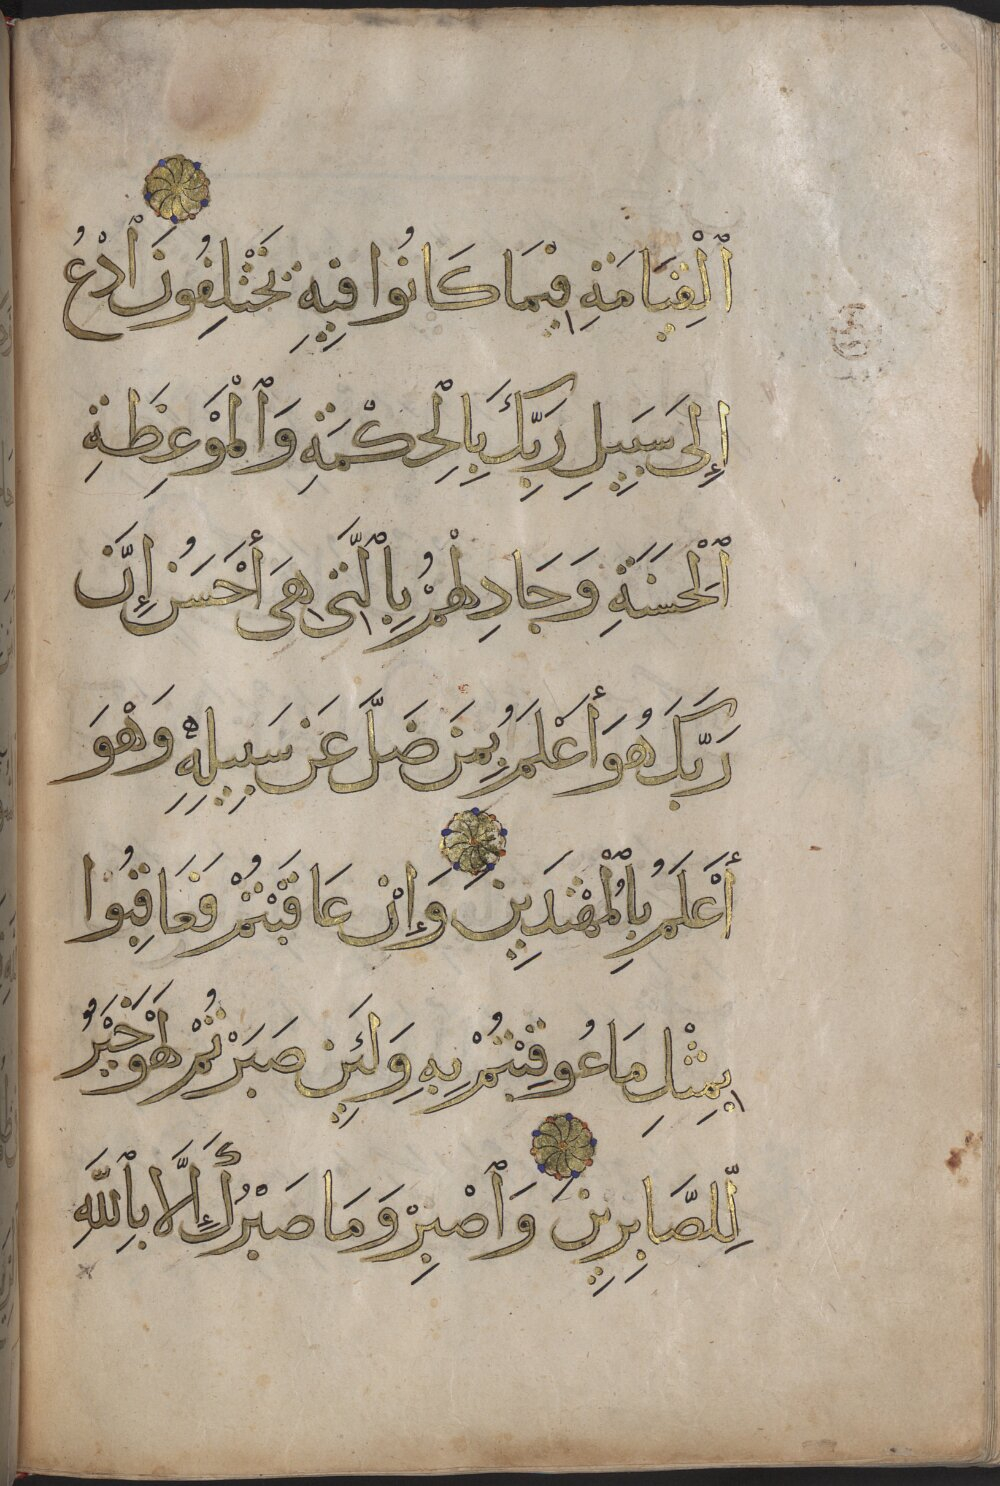 ٱلْقِيَامَةِ فِيمَا كَانُوا فِيهِ تَخْتَلِفُونَ ٱدْعُ
إِلَى سَبِيلِ رَبِّكَ بِالْحِكْمَةِ وَٱلْمَوْعِظَةِ
ٱلْحَسَنَةِ وَجَادِلْهُمْ بِٱلَّتِي هِيَ أَحْسَنُ إِنَّ
رَبَّكَ هُوَ أَعْلَمُ بِمَنْ ضَلَّ عَنْ سَبِيلِهِ وَهْوَ
أَعْلَمُ بِٱلْمُهْتَدِينَ وَإِنْ عَاقَبْتُمْ فَعَاقِبُوا
بِمِثْلِ مَا عُوقِبْتُمْ بِهِ وَلَئِنْ صَبَرْتُمْ لَهْوَ خَيْرٌ
لِلصَّابِرِينَ وَٱصْبِرْ وَمَا صَبْرُكَ إِلَّا بِٱللَّهِ